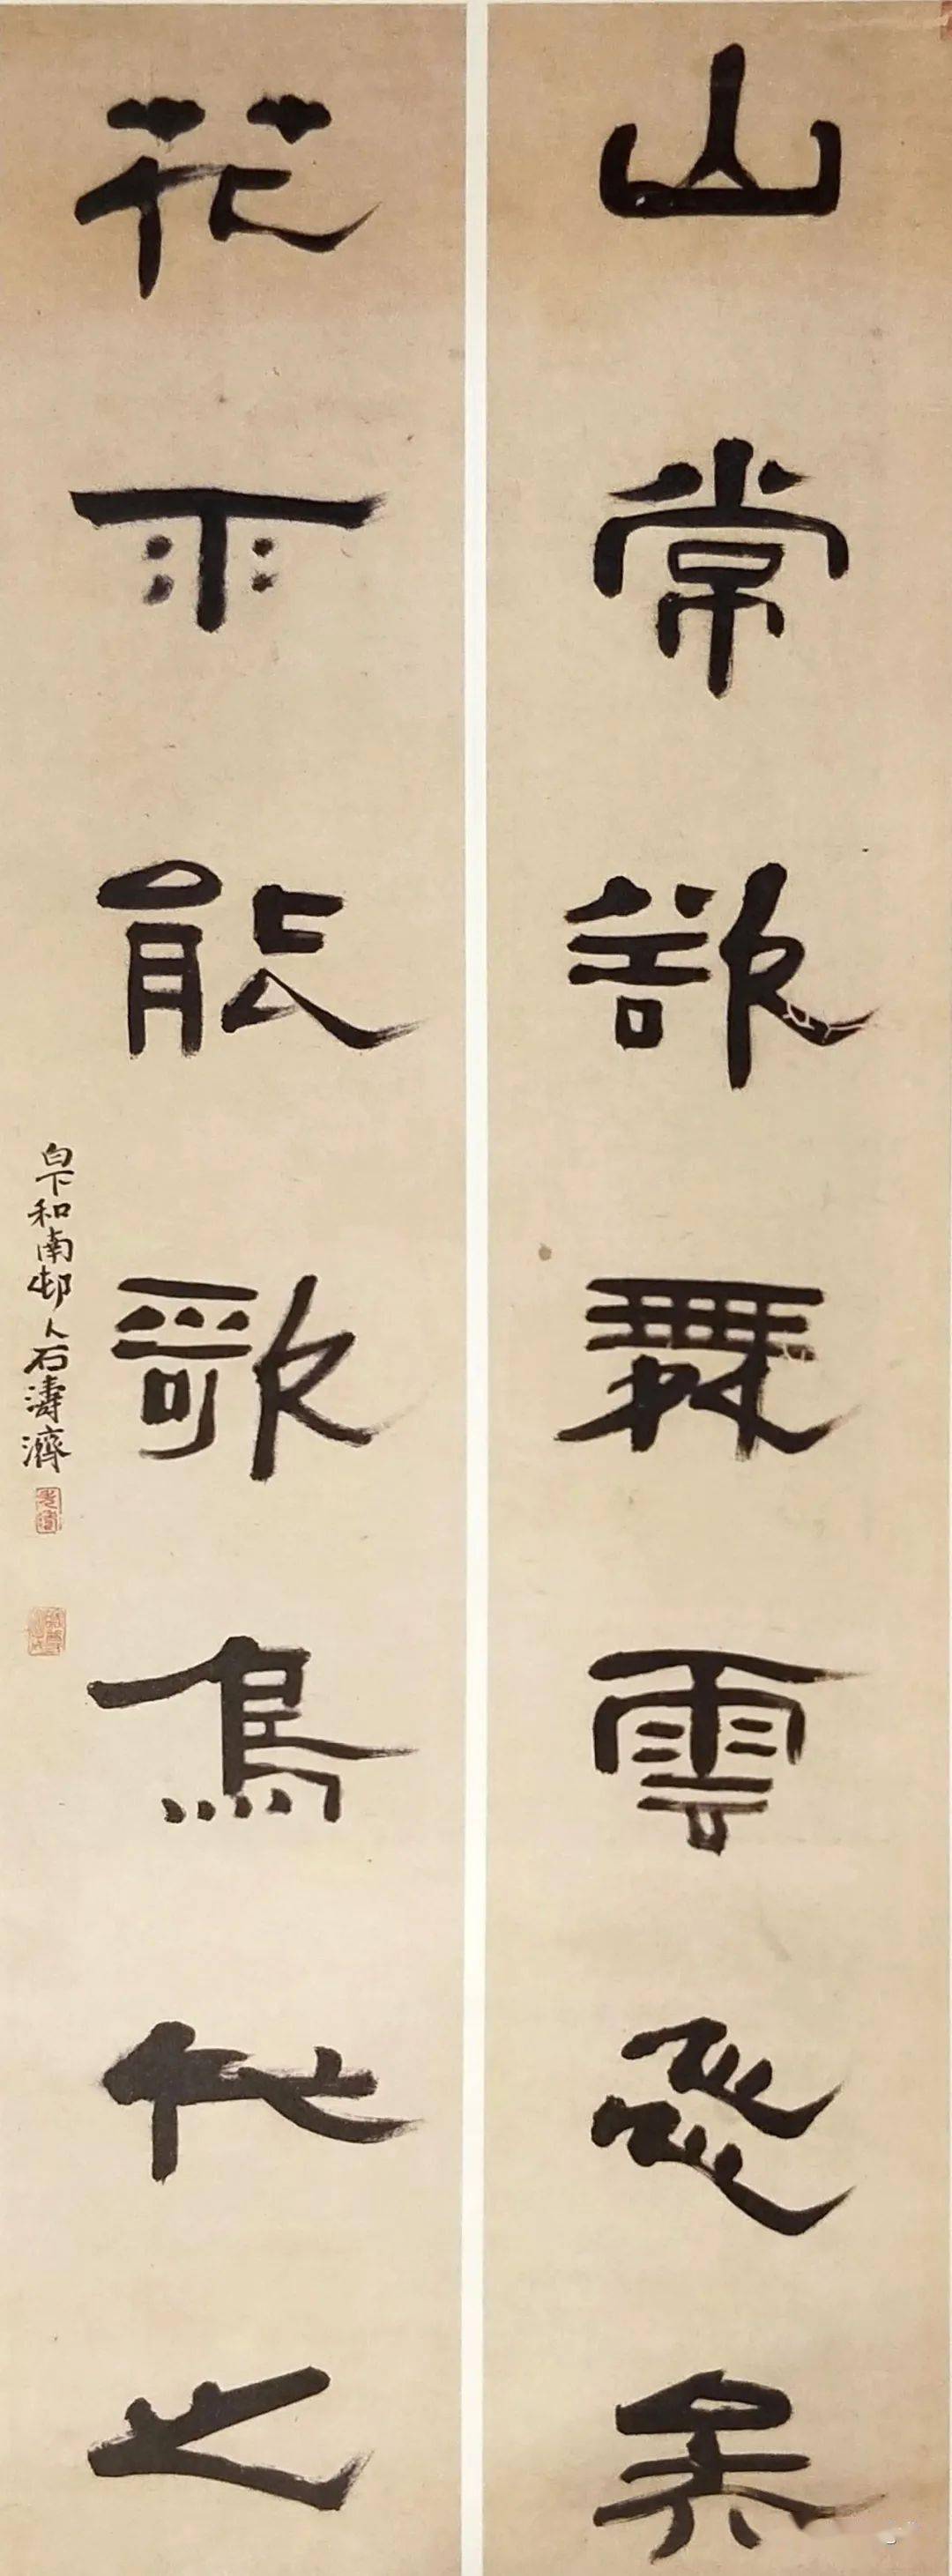 山常欲舞雲多矣
花不能歌鳥代之
白下和南邨人石濤濟